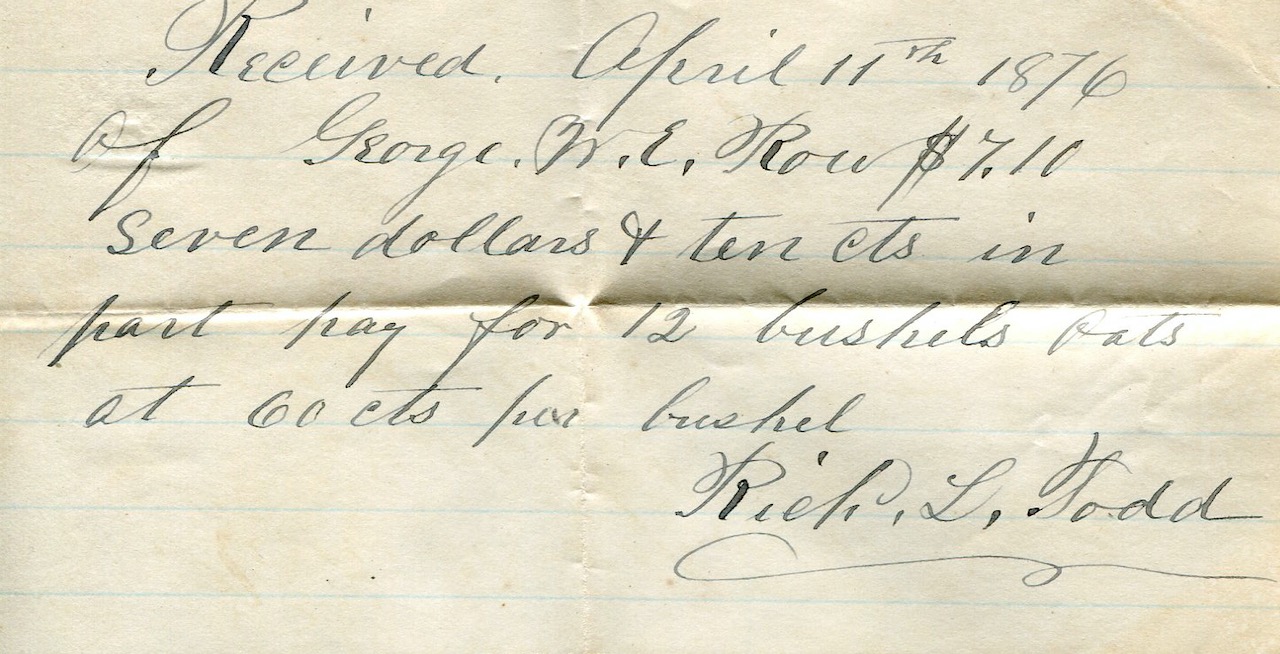 Received. April 11th 1876
Of George. W. E. Row $7.10
Seven dollars & ten cts in
part pay for 12 bushels Oats
at 60 cts per bushel
Rich. L. Todd